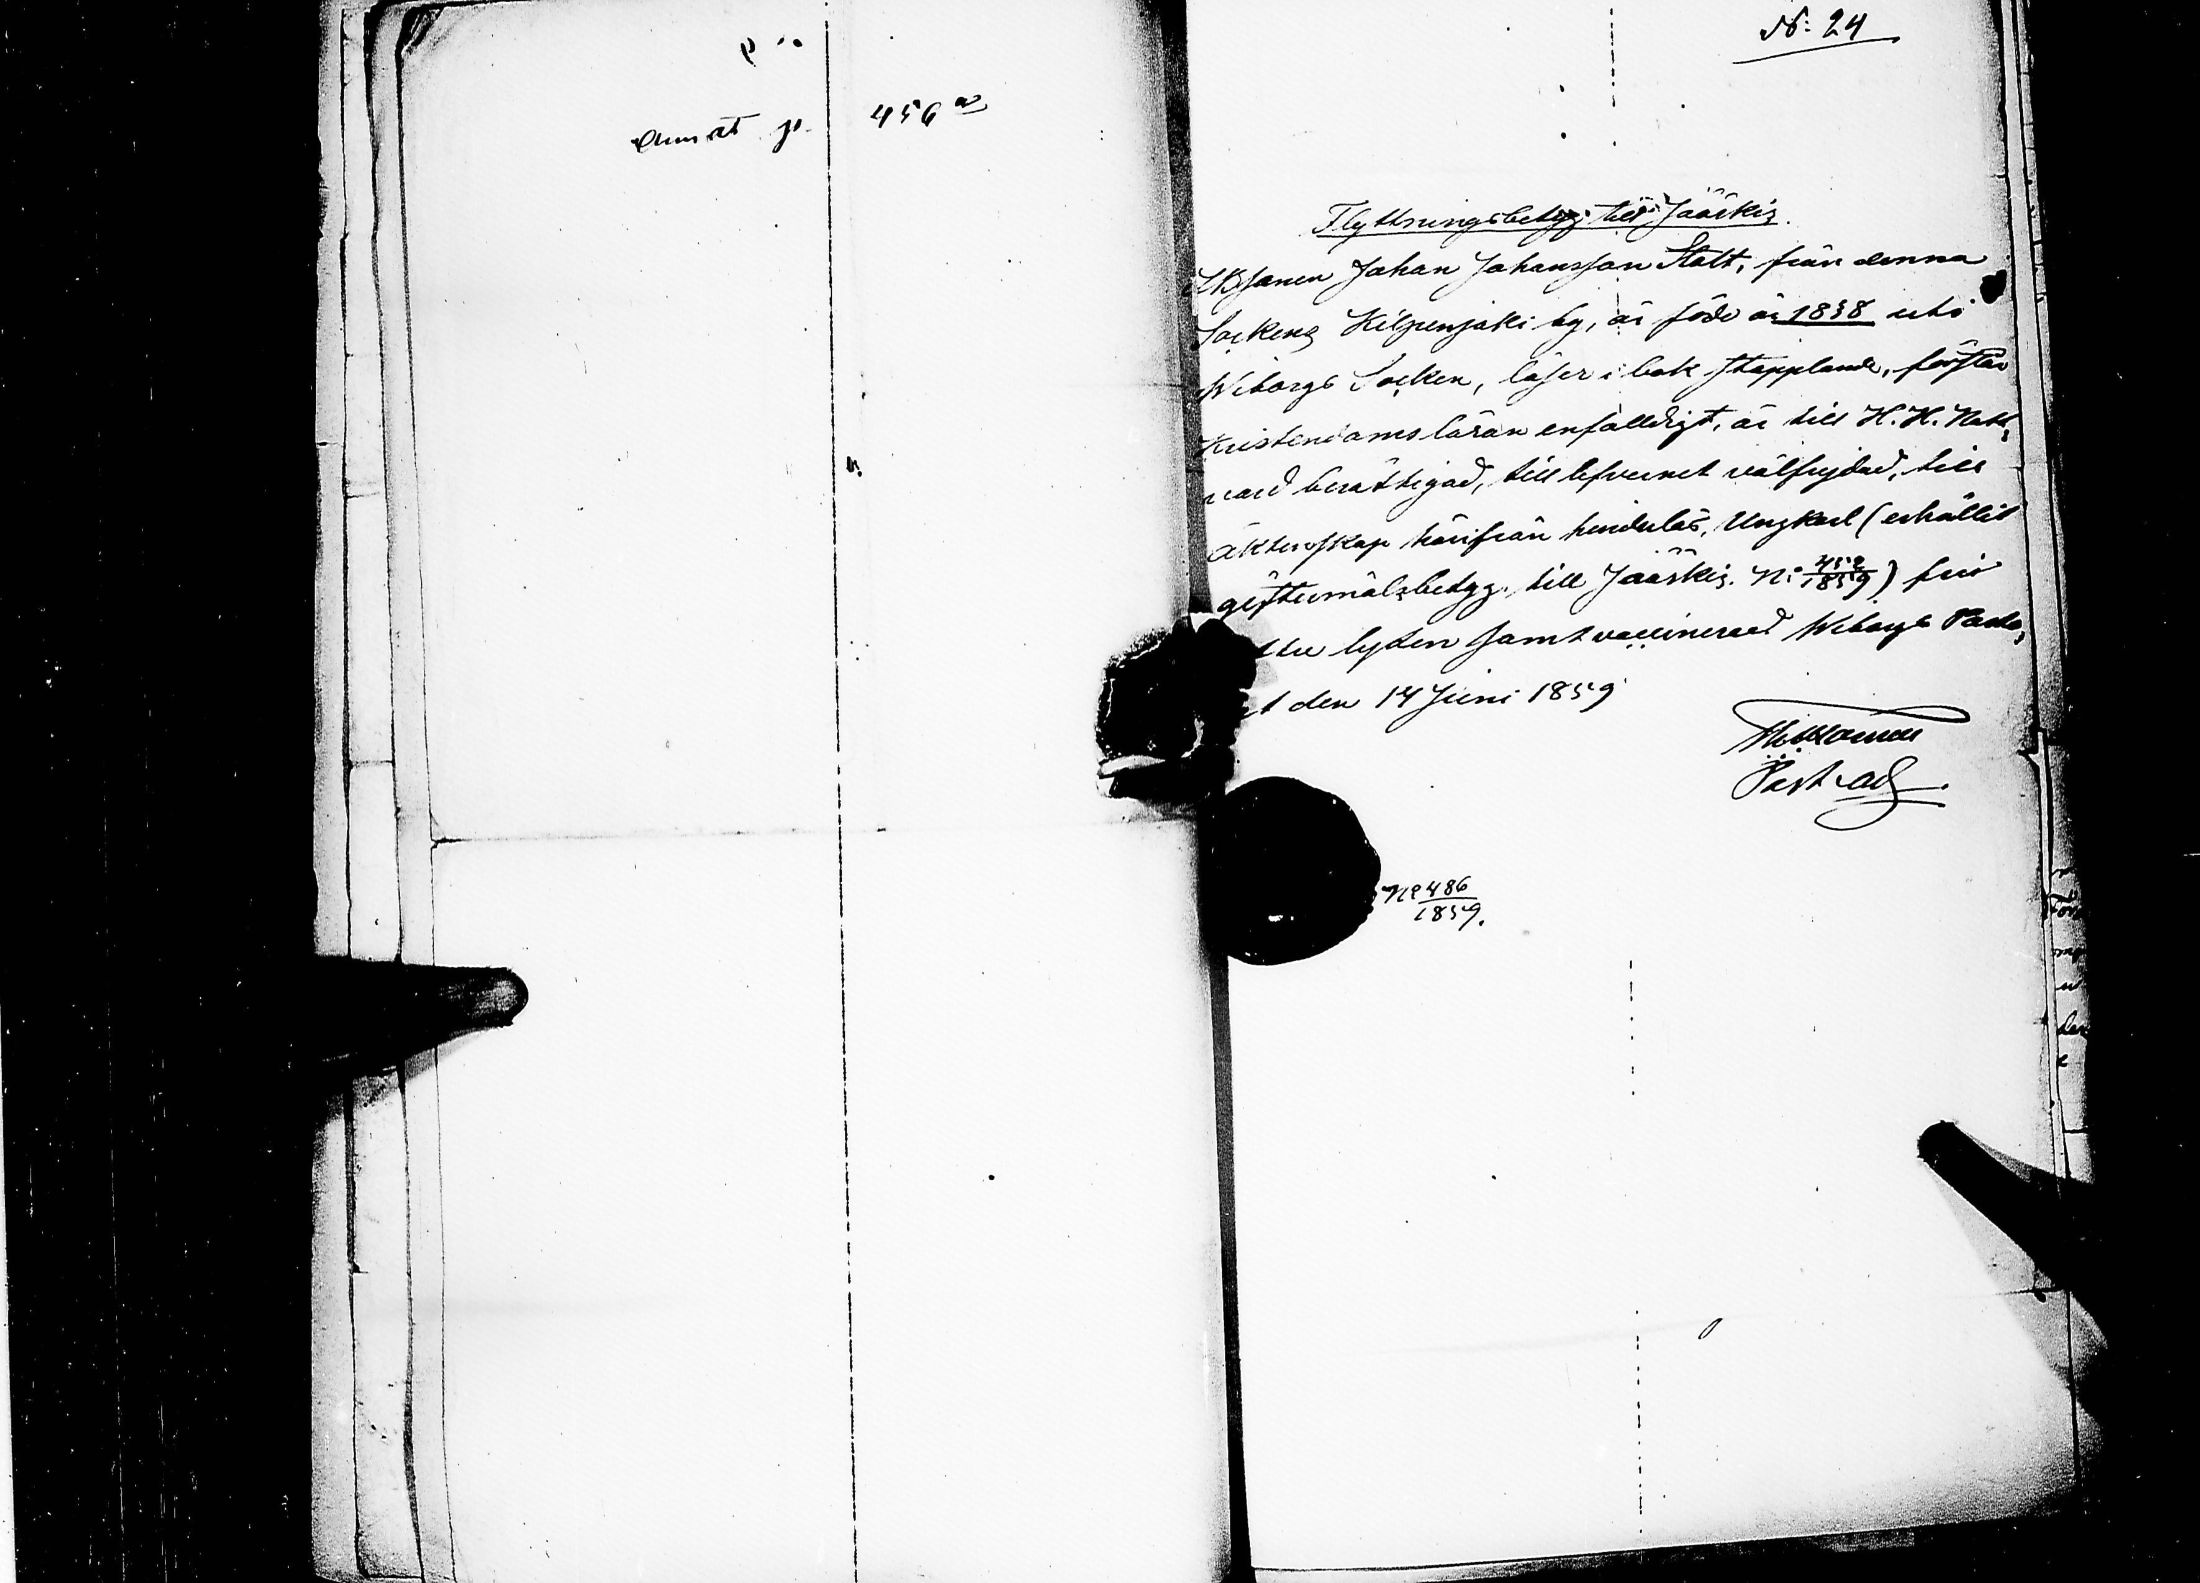 456
N: 24
Flyttningsbetyg till Jääskis.
Johan Johansson Statt, från denna
Sockens Kilpenjoki by, är född år 1838 uti
Wiborgs Socken, läser i bok stapplande, förstår
Kristendomsläran enfaldigt, är till H. H. Natt,
vard berättigad, till lefvernet välfrejdad, till
äktenskap härifrån hinderlös, Ungkarl (erhållit
giftermålsbetyg till Jääskis. N: 452/1859) fri
lyten samt vaccinerad Wiborgs Pasto,
den 14 Juni 1859
Past adj.
No 486/1859.